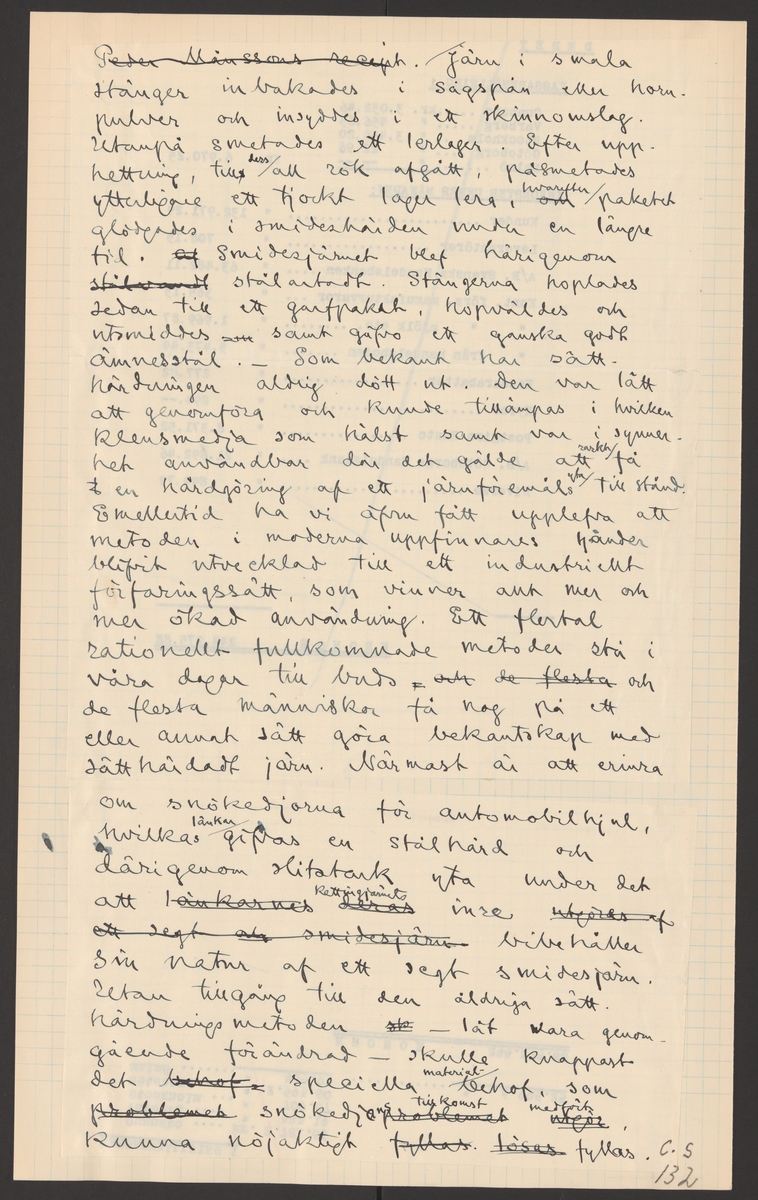 Peder Månssons recept. Järn i smala
stänger inbakades i sågspån eller horn-
pulver och insyddes i ett skinnomslag.
Utanpå smetades ett lerlager. Efter upp-
hettning, tills dess all rök afgått, påsmetades
ytterligare ett tjockt lager lera, och hvarefter paketet
glödgades i smideshärden under en längre
tid. af Smidesjärnet blef härigenom
stålvandt stålartadt. Stängerna hoplades
sedan till ett garfpaket, hopvälldes och
utsmiddes om samt gåfvo ett ganska godt
ämnesstål. — Som bekant har sätt-
härdningen aldrig dött ut. Den var lätt
att genomföra och kunde tillämpas i hvilken
klensmedja som hälst samt var i synner-
het användbar där det gälde att raskt få
en hårdgöring af ett järnföremåls yta till stånd.
Emellertid ha vi äfven fått upplefva att
metoden i moderna uppfinnares händer
blifvit utvecklad till ett industriellt
förfaringssätt, som vinner allt mer och
mer ökad användning. Ett flertal
rationellt fullkomnade metoder stå i
våra dagar till buds och de flesta och
de flesta människor få nog på ett
eller annat sätt göra bekantskap med
sätthärdadt järn. Närmast är att erinra
om snökedjorna för automobilhjul,
hvilkas länkar gifvas en stålhård och
därigenom slitstark yta under det
att länkarnes deras kettingjärnets inre utgöres af
ett segt smidesjärn bibehåller
sin natur af ett segt smidesjärn.
Utan tillgång till den åldriga sätt-
härdningsmetoden — låt vara genom-
gående förändrad — skulle knappast
det behof speciella material-behof, som
problemet snökedjans problemet tillkomst utgör medfört,
kunna nöjaktigt fyllas. lösas fyllas. C. S
132